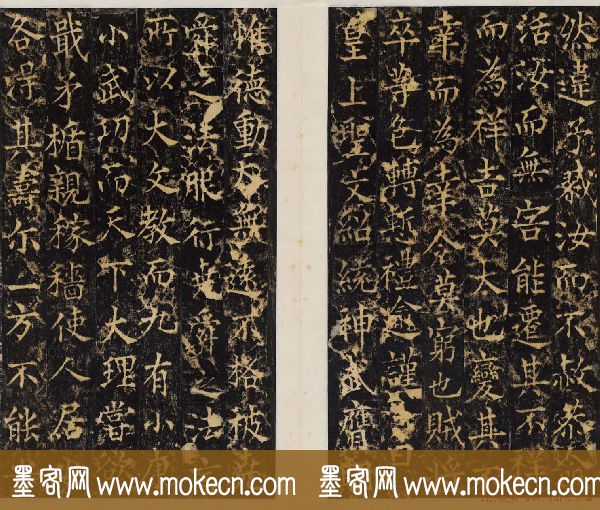 然違予戮汝而不赦恭
活汝而無害能遷其不祥
而為祥吉莫大也變其
幸而為幸令莫窮也賊將
卒等色轉禮愈謹日
皇上聖文紹統神武膺
惟德動天無遠不格被
舜之法服行堯舜之法
所以大文教而九有小康
小武功而天下大理嘗
戢矛楯親稼穡使人居
各得其壽尔一方不能
墨客网 www.mokecn.com 墨客网 www.mokecn.com